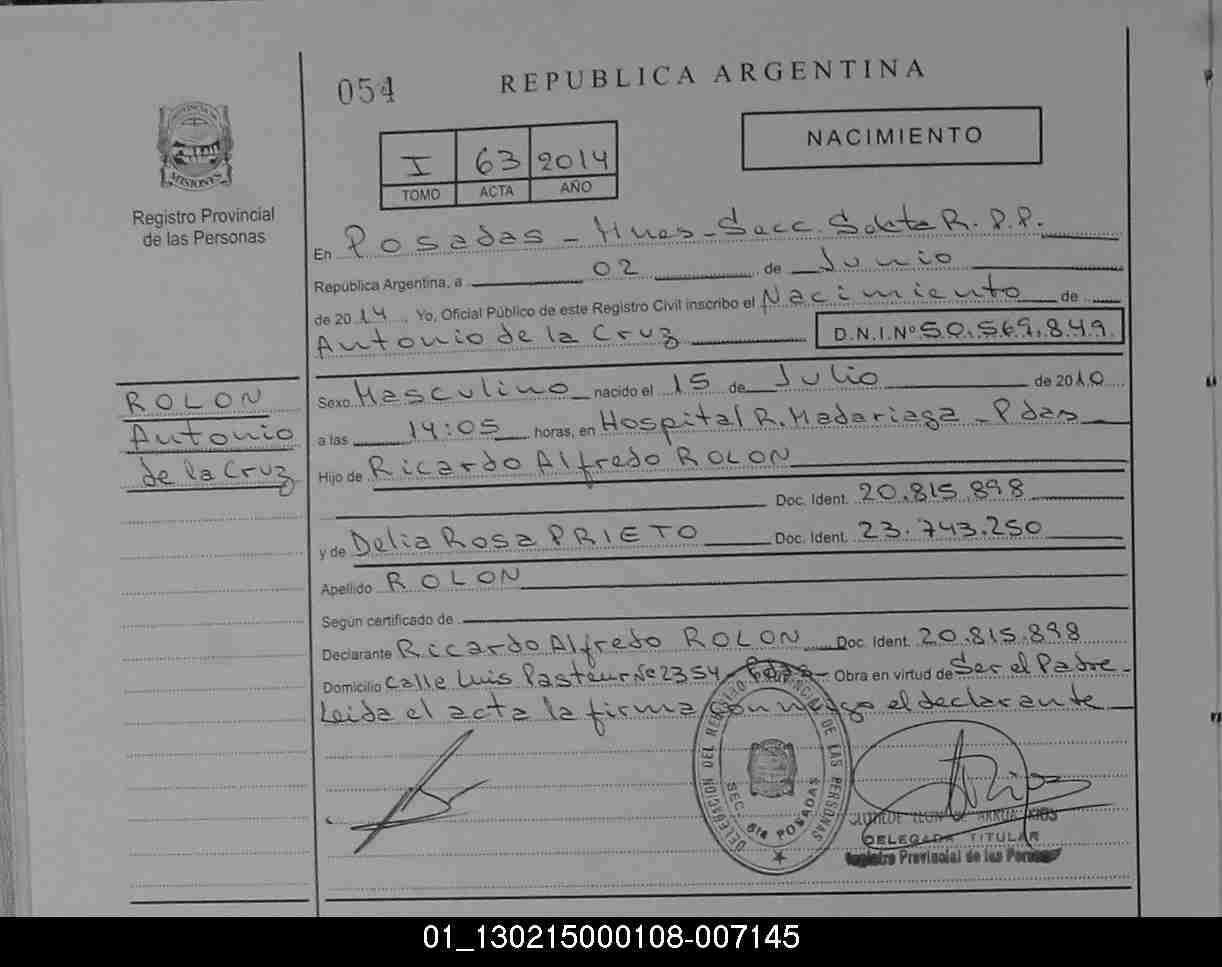 054
REPUBLICA ARGENTINA
NACIMIENTO
I 63 2014
TOMO ACTA AÑO
MISIONES
Registro Provincial
de las Personas
En Posadas - Mnes - Secc. Sexta R. P. P.
República Argentina, a 02 de Junio
de 2014. Yo, Oficial Público de este Registro Civil inscribo el Nacimiento de
Antonio de la Cruz D.N.I.Nº 50.569.849.
Sexo Masculino nacido el 15 de Julio de 2010
a las 14:05 horas, en Hospital R. Madariaga - Pdas
Hijo de Ricardo Alfredo ROLON
Doc. Ident. 20.815.898
y de Delia Rosa PRIETO Doc. Ident. 23.743.250
Apellido ROLON
Según certificado de
Declarante Ricardo Alfredo ROLON Doc. Ident. 20.815.898
Domicilio Calle Luis Pasteur Nº 2354 - Pdas - Obra en virtud de Ser el Padre -
Leida el acta la firma conmigo el declarante
ROLON
Antonio
de la Cruz
DELEGACION DEL REGISTRO PROVINCIAL DE LAS PERSONAS
SEC. 6ta POSADAS
DELEGADA TITULAR
Registro Provincial de las Personas
01_130215000108-007145